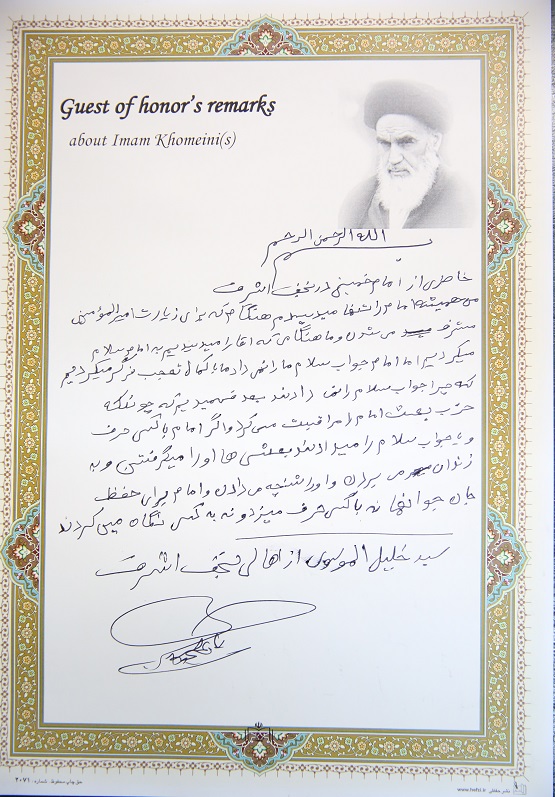 Guest of honor's remarks
about Imam Khomeini(s)
بسم الله الرحمن الرحيم
خاطره‌ای از امام خمینی در نجف اشرف
من همیشه امام را تنها میدیدم هنگام که برای زیارت امیرالمؤمنین
مشرف می شدن و ما هنگامی که آقا را میدیدیم به امام سلام
میکردیم اما امام جواب سلام ما را نمی داد ما با کمال تعجب فکر میکردیم
که چرا جواب سلام را نمی دادند بعد فهمیدیم که چونکه
حزب بعث امام را مراقبت می کرد و اگر امام با کسی حرف
و یا جواب سلام را میدادند بعثی ها او را میگرفتن و به
زندان می بردن و او را شکنجه می دادن و امام برای حفظ
جان جوانها نه با کسی حرف میزد و نه به کسی نگاه می کردند
سید خلیل الموسوی از اهالی نجف اشرف
www.hefsi.ir
حق چاپ محفوظ شماره ۲۰۷۱